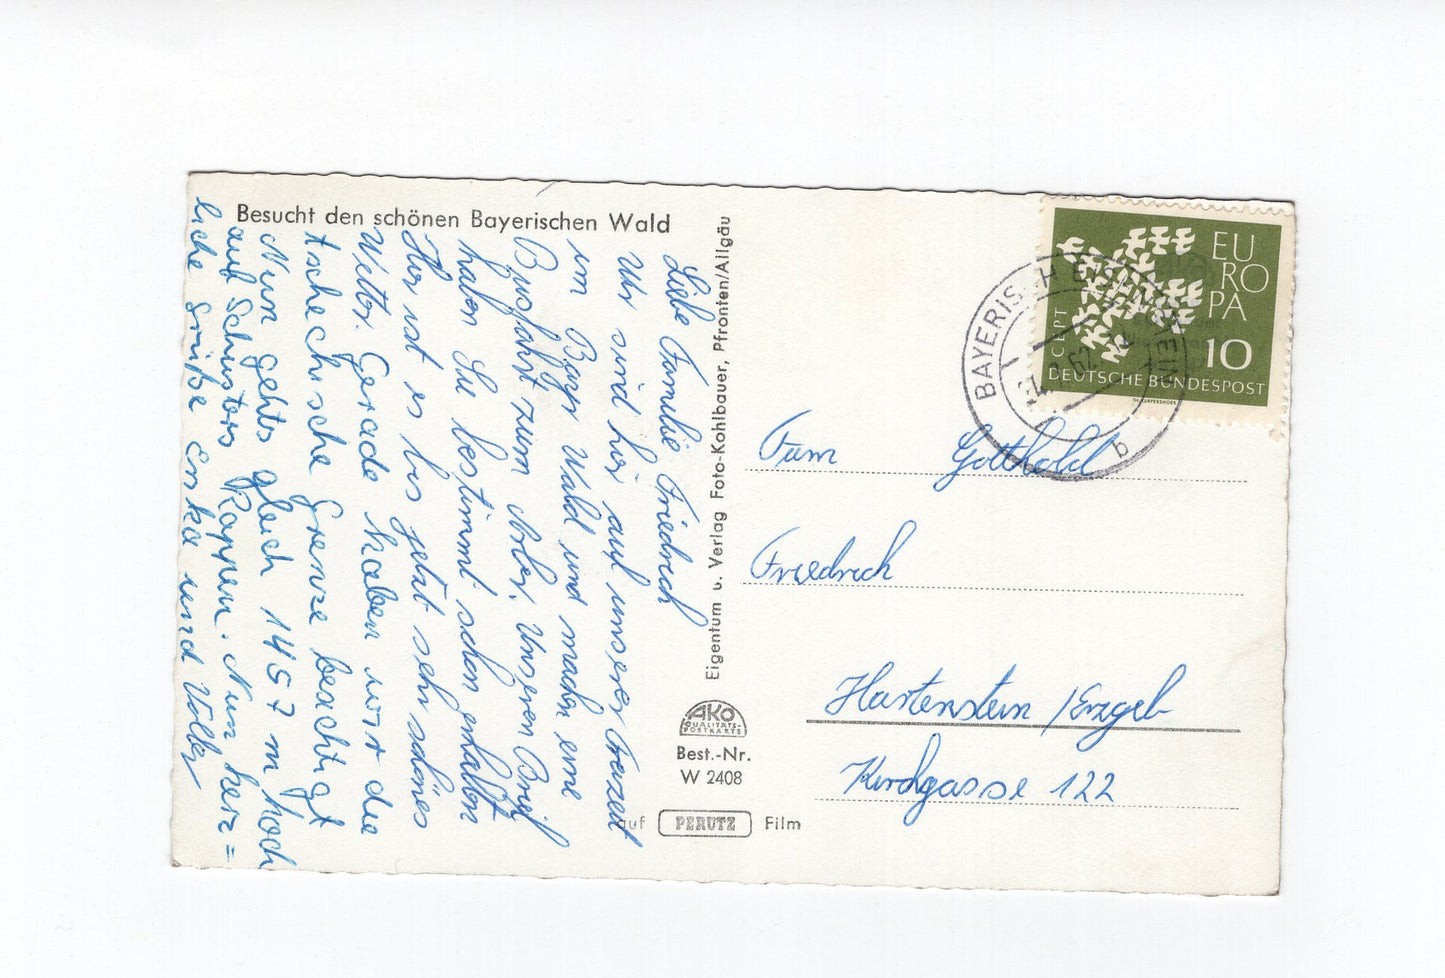 Besucht den schönen Bayerischen Wald
Liebe Familie Friedrich
Wir sind hier auf unserer
im Bayr Wald und machen eine
Busfahrt zum Arber. Unseren Brief
haben Sie bestimmt schon erhalten
Hier ist es bis jetzt sehr schönes
Wetter. Gerade haben wir die
tschechische Grenze besichtigt
Nun gehts gleich 1457 m hoch
auf Schusters Rappen. Nun herz=
liche Grüße Erika und Volker
Eigentum u. Verlag Foto-Kohlbauer, Pfronten/Allgäu
AKO
QUALITÄTS-
POSTKARTE
Best.-Nr.
W 2408
auf PERUTZ Film
EU
RO
PA
CEPT
10
DEUTSCHE BUNDESPOST
BAYERISCH EISENSTEIN
b
Fam Gotthold
Friedrich
Hartenstein /Erzgeb
Kirchgasse 122